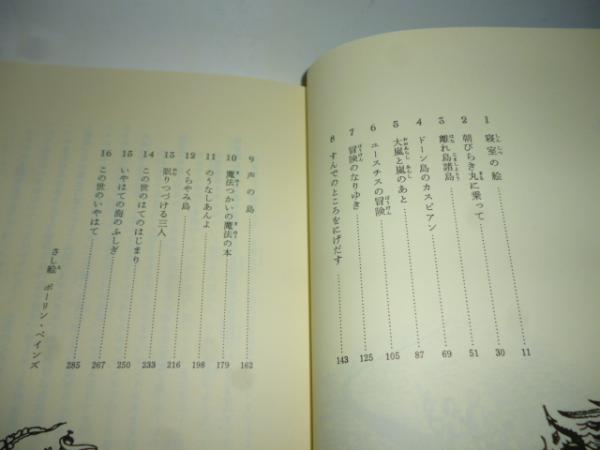 1 寝室の絵 11
2 朝びらき丸に乗って 30
3 離れ島諸島 51
4 ドーン島のカスピアン 69
5 大嵐と嵐のあと 87
6 ユースチスの冒険 105
7 冒険のなりゆき 125
8 すんでのところをにげだす 143
9 声の島 162
10 魔法つかいの魔法の本 179
11 のうなしあんよ 198
12 くらやみ島 216
13 眠りつづける三人 233
14 この世のはてのはじまり 250
15 いやはての海のふしぎ 267
16 この世のいやはて 285
さし絵 ポーリン・ベインズ